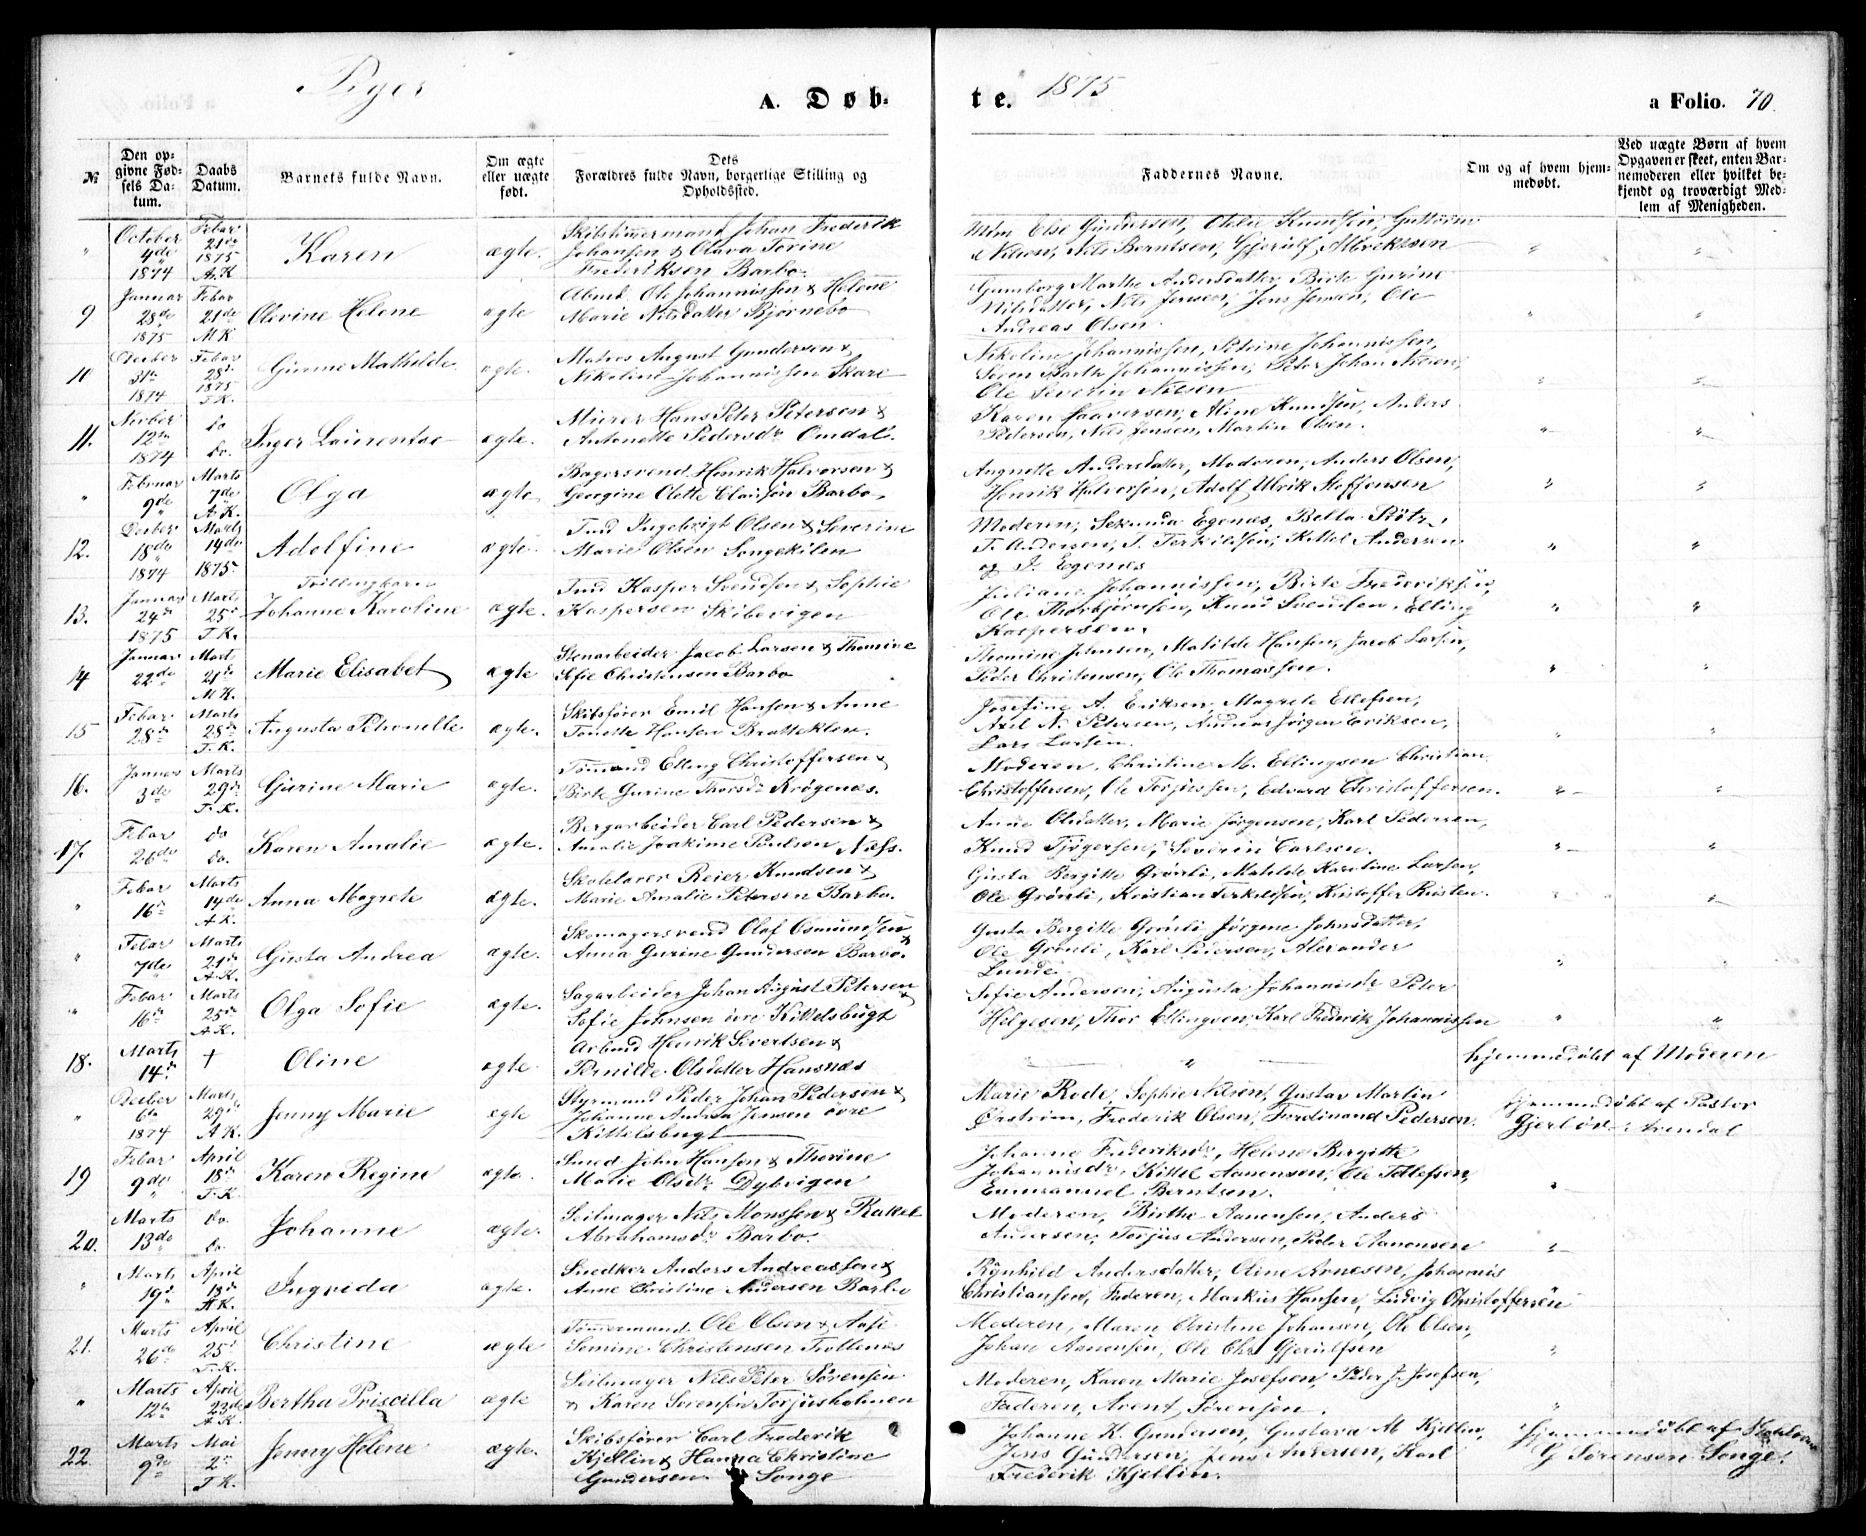 Piger
1875
A. Døb-
te.
a Folio. 70.
№
Den op-
givne Fød-
sels Da-
tum.
Daabs
Datum.
Barnets fulde Navn.
Om ægte
eller uægte
født.
Dets
Forældres fulde Navn, borgerlige Stilling og
Opholdssted.
Faddernes Navne.
Om og af hvem hjem-
medøbt.
Ved uægte Børn af hvem
Opgaven er skeet, enten Bar-
nemoderen eller hvilket be-
kjendt og troværdigt Med-
lem af Menigheden.
" October 4de 1874
Febar 21de 1875 A.K
Karen
ægte.
Skibstømmermand Johan Frederik
Johansen & Olava Torine
Frederiksen Barbo.
Else Gundersen, Knudsen,
Nilson, Nils Berntsen,
9 Januar 28de 1875
Febar 21de M.K
Olevine Helene
ægte
Arbmd. Ole Johannissen & Helene
Marie Nilsdatter Bjørnebo
Gunborg Marthe Andersdatter, Birte Gurine
Nilsdatter, Nils Jensen, Jens Jensen, Ole
Andreas Olsen.
10 Decber 31te 1874
Febar 28de 1875 T.K.
Gurine Mathilde
ægte.
Matros August Gundersen &
Nikoline Johannissen Skare
Nikoline Johannissen, Petrine Johannissen,
Johannissen, Peter Johan Nilsen,
Ole Severin Nilsen
11. Novber 12te 1874
do do.
Inger Laurentse
ægte.
Murer Hans Peter Petersen &
Antonette Pedersdr Omdal.
Karen Haaversen, Aline Knudsen, Anders
Pedersen, Nils Jensen, Martin Olsen.
" Februar 9de
Marts 7de A.K.
Olga
ægte
Bagersvend Henrik Halvorsen &
Georgine Olette Clausen Barbo
Angnette Andersdatter, Moderen, Anders Olsen,
Henrik Halvorsen, Adolf Ulrik Steffensen
12. Decber 18de 1874
Marts 14de 1875
Adolfine
ægte.
Ingebrigt Olsen & Severine
Marie Olsen Songekilen
Moderen, Sekunda Egenæs, Bella
T. Andersen, T. Terkildsen, Kittel Andersen
og J. Egenæs
13. Januar 24de 1875
Marts 25de T.K.
Tvillingbarn
Johanne Karoline
ægte.
Kasper Svendsen & Sophie
Kaspersen Skibevigen
Juliane Johannissen, Birte Frederiksen,
Ole Thorbjørnsen, Knud Svendsen, Elling
Kaspersen.
14 Januar 22de
Marts 21de M.K.
Marie Elisabet
ægte
Stenarbeider Jacob Larsen & Thomine
Sofie Christensen Barbo
Thomine Johnsen, Matilde Hansen, Jacob Larsen,
Peder Christensen, Ole Thomassen.
15 Febar 28de
Marts 28de T.K.
Augusta Petronelle
ægte.
Skibsfører Emil Hansen & Anne
Tonette Hansen Bratteklev.
Josefine A. Eriksen, Magrete Ellefsen,
Axel N. Petersen, Andreas Jørgen Eriksen,
Lars Larsen.
16. Januar 3de
Marts 29de T.K.
Gurine Marie
ægte.
Tømmermd Elling Christoffersen &
Birte Gurine Thorsdr Krøgenæs.
Moderen, Christine M. Ellingsen Christian
Christoffersen, Ole Torjussen, Edvard Christoffersen.
17. Febar 26de
do do.
Karen Amalie
ægte.
Bergarbeider Carl Pedersen &
Amalie Joakime Poulsen Næs.
Anne Olsdatter, Marie Jørgensen, Karl Pedersen,
Knud Tjøgersen, Severin Carlsen.
" Febar 16de
Marts 14de A.K.
Anna Magrete
ægte.
Skolelærer Reier Knudsen &
Marie Amalie Petersen Barbo.
Gusta Bergitte Grønli, Matilde Karoline Larsen,
Ole Grønli, Kristian Terkildsen, Kristoffer
" Febar 7de
Marts 21de A.K.
Gusta Andrea
ægte.
Skomagersvend Olaf Osmundsen &
Anna Gurine Gundersen Barbo.
Gusta Bergitte Grønli, Jørgine Johnsdatter,
Ole Grønli, Karl Pedersen, Alexander
Lunde
" Febar 16de
Marts 25de A.K.
Olga Sofie
ægte.
Sagarbeider Johan August Petersen &
Sofie Johnsen øvre Kittelsbugt
Sofie Andersen, Augusta Johannisdr Peter
Helgesen, Thor Ellingsen, Karl Frederik Johannissen
18. Marts 14de
†
Oline
ægte
Arbmd Henrik Sivertsen &
Pernille Olsdatter Hansnæs
"
hjemmedøbt af Moderen
" Decber 6te 1874
Marts 29de A.K.
Jenny Marie
ægte
Styrmand Peder Johan Pedersen &
Johanne Andrea Jensen øvre
Kittelsbugt
Marie Rode, Sophie Nilsen, Gustav Martin
Ørstrøm, Frederik Olsen, Ferdinand Pedersen.
hjemmedøbt af Pastor
Gjerløv. Arendal
19 Febar 9de
April 18de T.K.
Karen Regine
ægte.
Smed John Hansen & Thorine
Marie Olsdr Dybvigen
Johanne Frederiksdr, Helene Bergitte
Johannisdr, Kittel Aanonsen, Ole Tellefsen,
Emmanuel Berntsen.
20. Marts 13de
do. do.
Johanne
ægte.
Seilmager Nils Monssen & Rakel
Abrahamsdr Barbo.
Moderen, Birthe Aanonsen, Anders
Andersen, Torjus Andersen, Peder Aanonsen
" Marts 19de
April 18de A.K.
Ingvida
ægte.
Snedker Anders Andreassen &
Anne Christine Andersen Barbo
Rønhild Andersdatter, Oline Arnesen, Johannis
Christiansen, Faderen, Markus Hansen, Ludvig Christoffersen
21. Marts 26de
April 25de T.K.
Christine
ægte
Tømmermand Ole Olsen & Aase
Semine Christensen Trollenæs
Moderen, Maren Christine Johansen, Ole Olsen,
Johan Aanonsen, Ole Chr Gjerulfsen
" Marts 12te
April 23de A.K.
Bertha Priscilla
ægte
Seilmager Nils Peter Sørensen
& Karen Sørensen Torjusholmen
Moderen, Karen Marie Josefsen, Peder J. Josefsen,
Faderen, Avent Sørensen.
22. Marts 9de
Mai 2de T.K.
Jenny Helene
ægte.
Skibsfører Carl Frederik
Kjellin & Hanna Christine
Gundersen Songe
Johanne K. Gundersen, Gustava M Kjellin,
Jens Gundersen, Jens Andersen, Karl
Frederik Kjellin.
hjemmedøbt af
G Sørensen Songe.